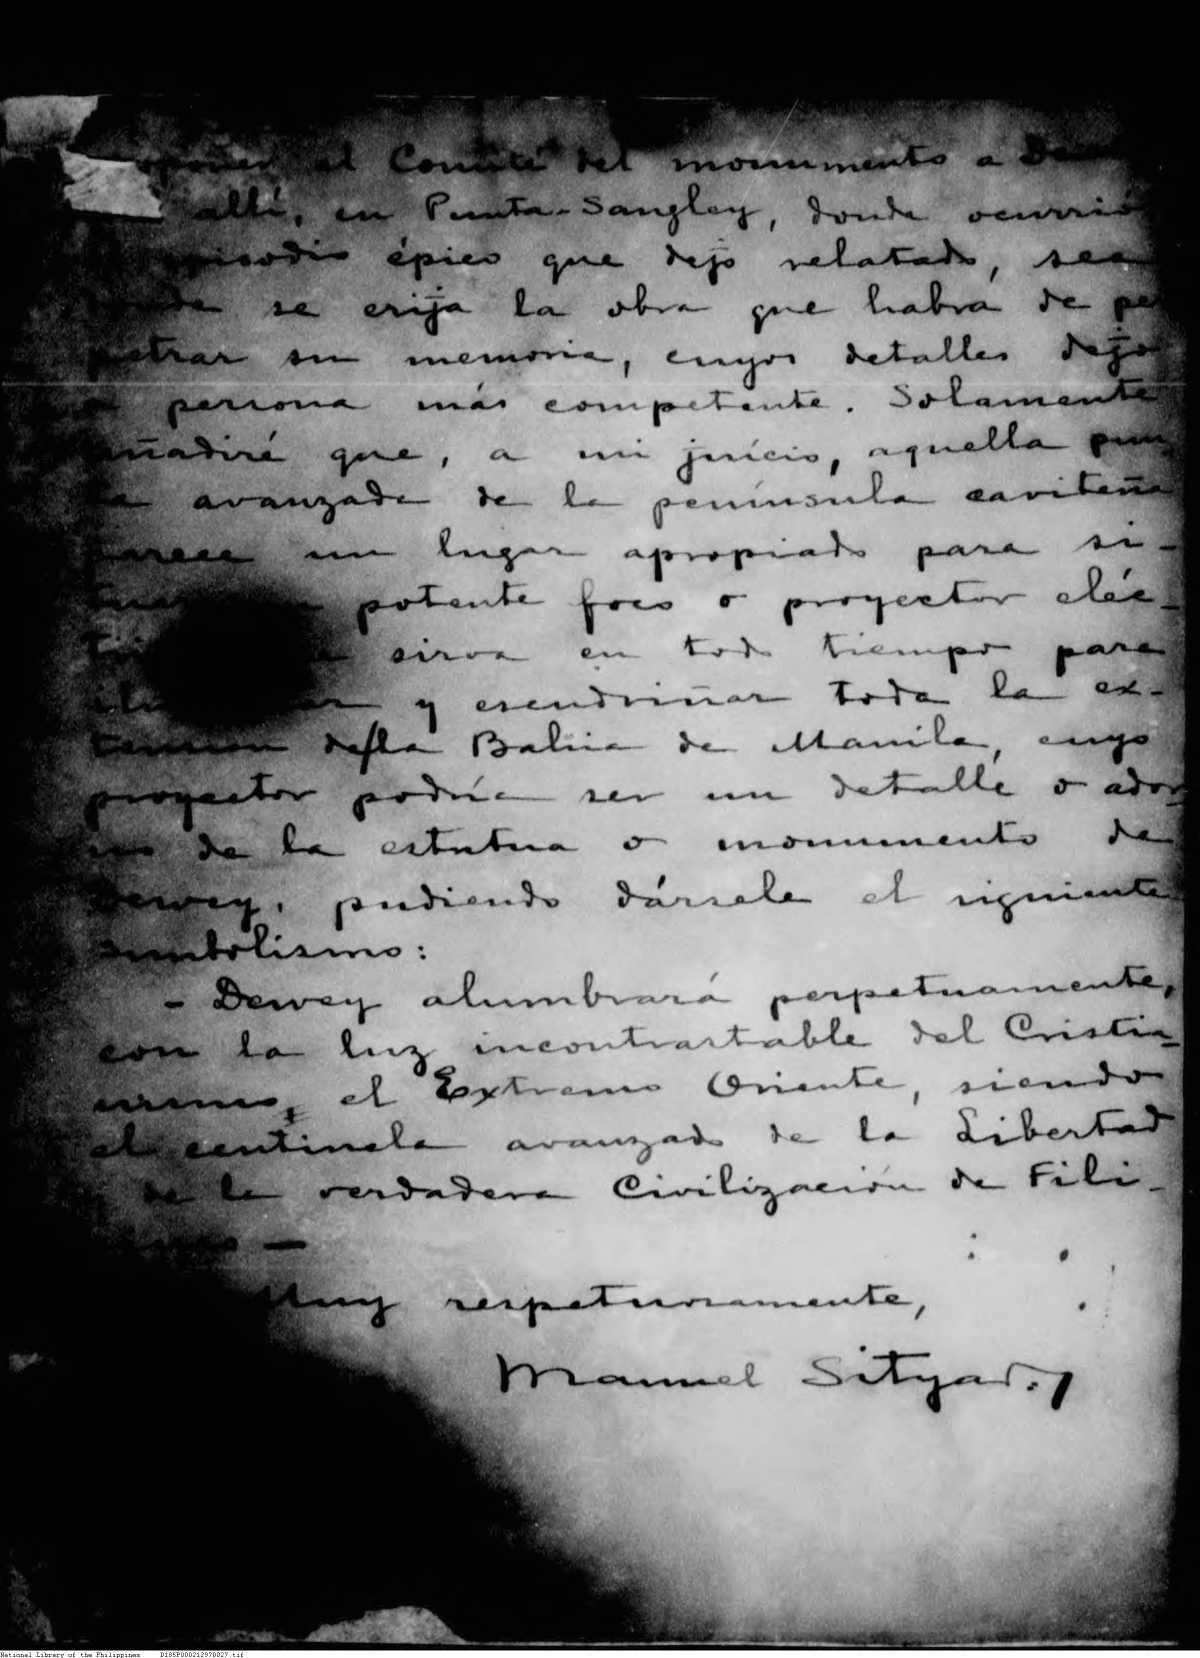 al Comité del monumento a
allí, en Punta-Sangley, donde ocurrió
episodio épico que dejo relatado, sea
donde se erija la obra que habrá de per
petrar su memoria, cuyos detalles dejo
a persona más competente. Solamente
añadiré que, a mi juício, aquella pun
ta avanzada de la península caviteña
parece un lugar apropiado para si-
potente foco o proyector eléc-
sirva en todo tiempo para
y escudriñar toda la ex-
tension de la Bahia de Manila, cuyo
proyector podría ser un detalle o ador
no de la estutua o monumento de
Dewey, pudiendo dársele el siguiente
simbolismo:
- Dewey alumbrará perpetuamente,
con la luz incontrastable del Cristia-
nismo, el Extremo Oriente, siendo
el centinela avanzado de la Libertad
de la verdadera Civilización de Fili-
Muy respetuosamente,
Manuel Sityar.
National Library of the Philippines D185P000212970027.tif